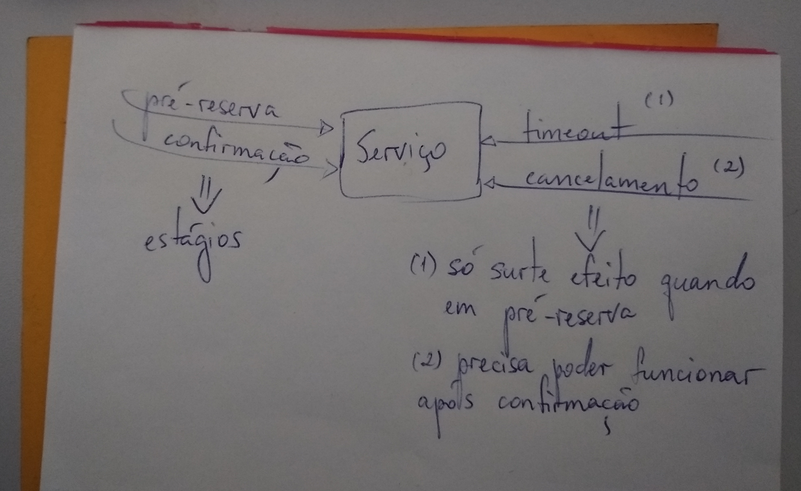 pré-reserva
confirmação
estágios
Serviço
timeout (1)
cancelamento (2)
(1) só surte efeito quando
em pré-reserva
(2) precisa poder funcionar
após confirmação